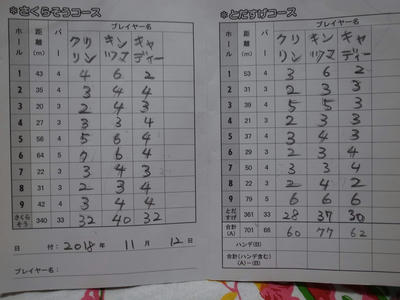 ※さくらそうコース
プレイヤー名
ホール 距離(m) パー クリリン キンツマ キャディー
1 43 4 4 6 2
2 35 4 3 4 4
3 20 3 2 4 3
4 27 3 3 3 4
5 56 4 5 6 4
6 64 5 7 6 4
7 22 3 3 4 3
8 31 3 2 3 4
9 42 4 3 4 4
さくらそう 340 33 32 40 32
日付：2018年 11月 12日
プレイヤー名：
※とだすげコース
プレイヤー名
ホール 距離(m) パー クリリン キンツマ キャディー
1 53 4 3 6 2
2 31 3 2 3 3
3 39 4 5 5 3
4 21 3 2 3 3
5 37 4 3 4 3
6 29 3 2 3 4
7 50 4 3 3 4
8 22 3 2 4 2
9 79 5 6 6 6
とだすげ 361 33 28 37 30
合計(A) 701 66 60 77 62
ハンデ(B)
合計(ハンデ含む)(A)－(B)